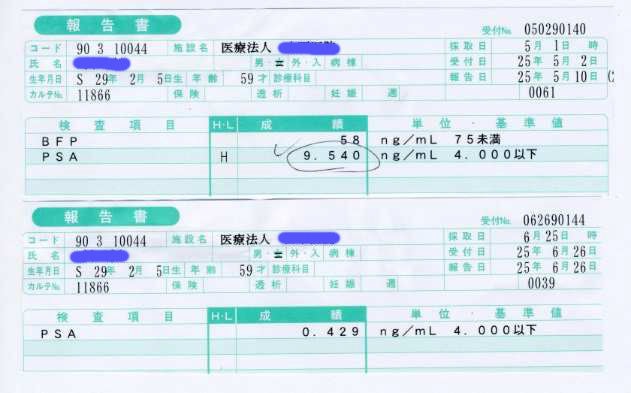 報告書
受付No. 050290140
コード 90 3 10044 施設名 医療法人 採取日 5月 1日 時
氏名 男・女 外・入 病棟 受付日 25年 5月 2日
生年月日 S 29年 2月 5日生 年齢 59才 診療科目 報告日 25年 5月10日
カルテNo. 11866 保険 透析 妊娠 週 0061
検査項目 H・L 成績 単位・基準値
BFP 58 ng/mL 75未満
PSA H 9.540 ng/mL 4.000以下
報告書
受付No. 062690144
コード 90 3 10044 施設名 医療法人 採取日 6月25日 時
氏名 男・女 外・入 病棟 受付日 25年 6月26日
生年月日 S 29年 2月 5日生 年齢 59才 診療科目 報告日 25年 6月26日
カルテNo. 11866 保険 透析 妊娠 週 0039
検査項目 H・L 成績 単位・基準値
PSA 0.429 ng/mL 4.000以下